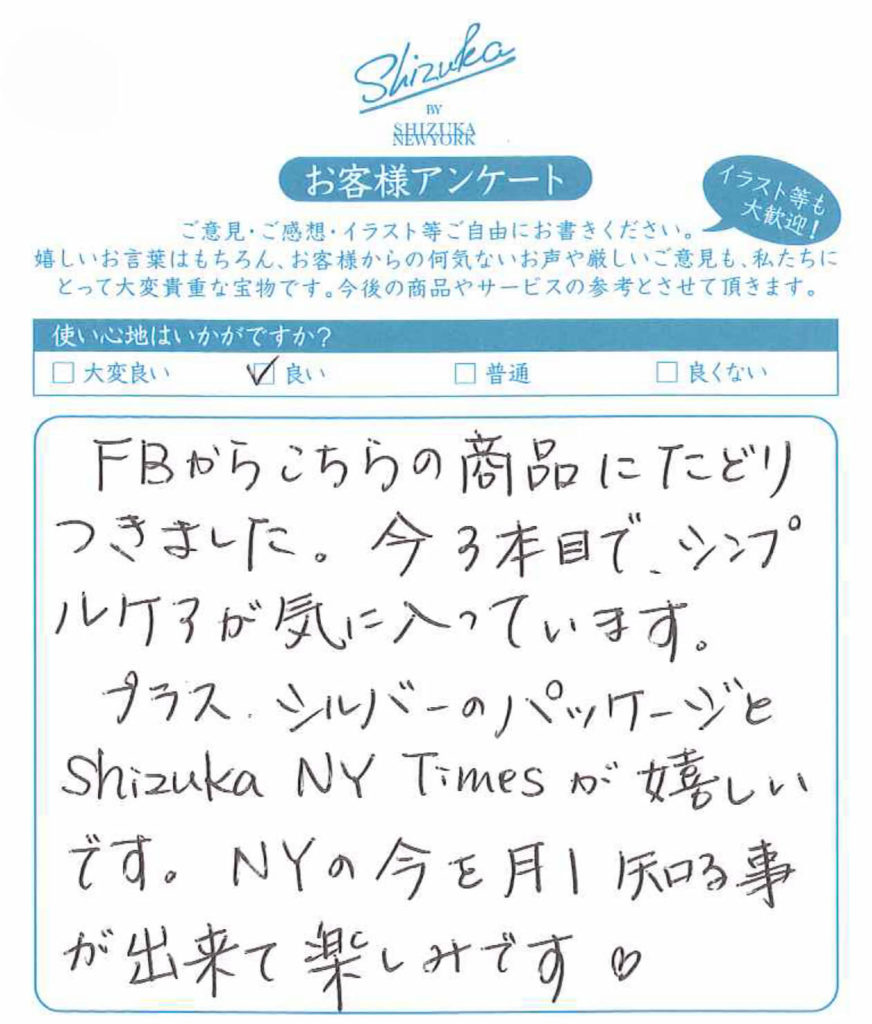 Shizuka
BY
SHIZUKA
NEWYORK
お客様アンケート
イラスト等も
大歓迎!
ご意見・ご感想・イラスト等ご自由にお書きください。
嬉しいお言葉はもちろん、お客様からの何気ないお声や厳しいご意見も、私たちに
とって大変貴重な宝物です。今後の商品やサービスの参考とさせて頂きます。
使い心地はいかがですか?
□ 大変良い ☑ 良い □ 普通 □ 良くない
FBからこちらの商品にたどり
つきました。今3本目で、シンプ
ルケアが気に入っています。
プラス、シルバーのパッケージと
Shizuka NY Times が嬉しい
です。NYの今を月1知る事
が出来て楽しみです♡